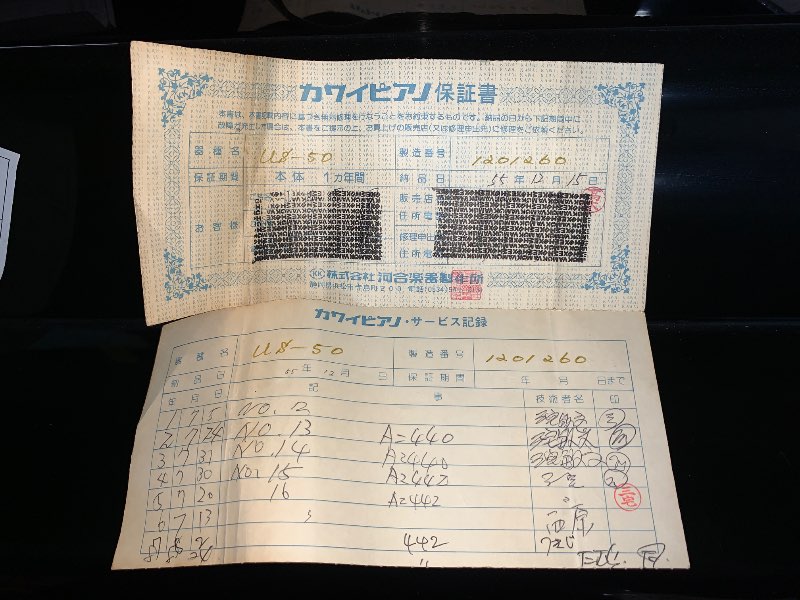 カワイピアノ保証書
本書は、本書記載内容に基づき無料修理を行なうことをお約束するものです。納品の日から下記期間中に
故障が発生した場合は、本書をご提示の上、お買上げの販売店(又は修理申出先)に修理をご依頼ください。
器種名 US-50 製造番号 1201260
保証期間 本体 1カ年間 納品日 55年12月15日
お客様
販売店
住所電
修理申出
住所電
株式会社 河合楽器製作所
カワイピアノ・サービス記録
器種名 US-50 製造番号 1201260
納品日 55年12月 日 保証期間 年 月 日まで
年月日 記 事 技術者名 印
1 7 5 NO.12
2 7 24 NO.13 A=440
3 7 31 NO.14 A=440
4 7 30 NO.15 A=442
5 7 20 16 A=442
6 7 13 西原
442